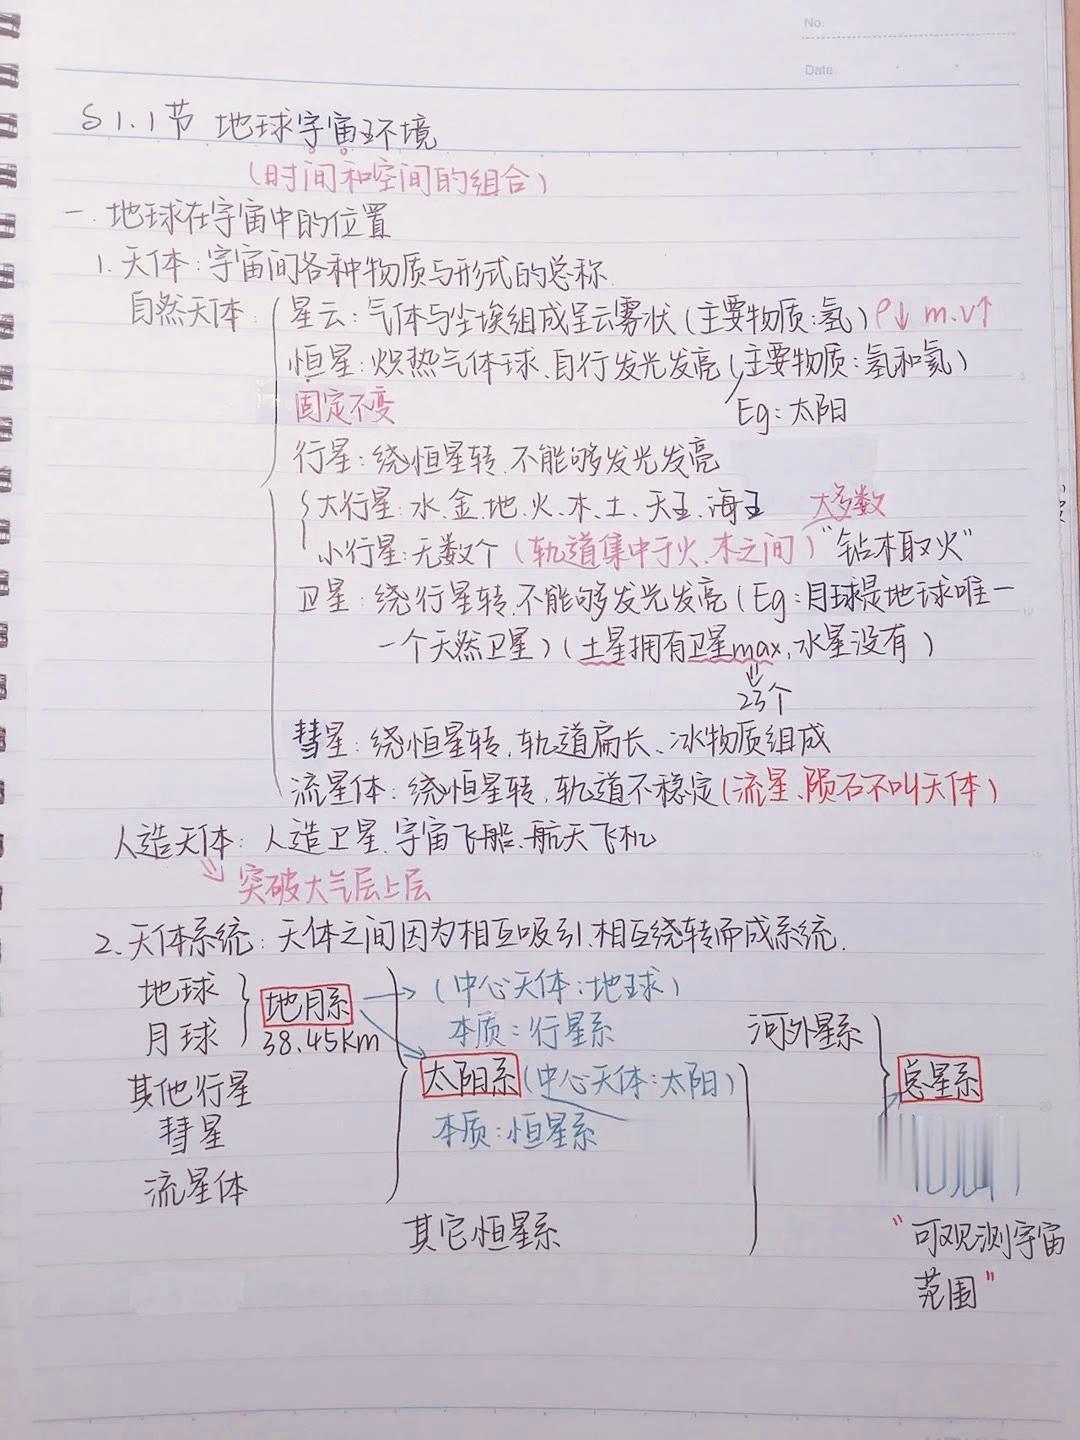 No.
Date
§1.1节 地球宇宙环境
(时间和空间的组合)
一.地球在宇宙中的位置
1.天体:宇宙间各种物质与形式的总称.
自然天体:
星云:气体与尘埃组成呈云雾状(主要物质:氢) ρ↓ m.v↑
恒星:炽热气体球、自行发光发亮(主要物质:氢和氦)
固定不变
Eg:太阳
行星:绕恒星转.不能够发光发亮
大行星:水.金.地.火.木.土.天王.海王 大多数
小行星:无数个(轨道集中于火、木之间)"钻木取火"
卫星:绕行星转.不能够发光发亮(Eg:月球是地球唯一
一个天然卫星)(土星拥有卫星max,水星没有)
⇓
23个
彗星:绕恒星转.轨道扁长、冰物质组成
流星体:绕恒星转.轨道不稳定(流星、陨石不叫天体)
人造天体:人造卫星.宇宙飞船.航天飞机
⇓ 突破大气层上层
2.天体系统:天体之间因为相互吸引.相互绕转而成系统.
地球
月球
地月系 → (中心天体:地球)
38.45km
本质:行星系
其他行星
彗星
流星体
太阳系(中心天体:太阳)
本质:恒星系
其它恒星系
河外星系
总星系
"可观测宇宙
范围"